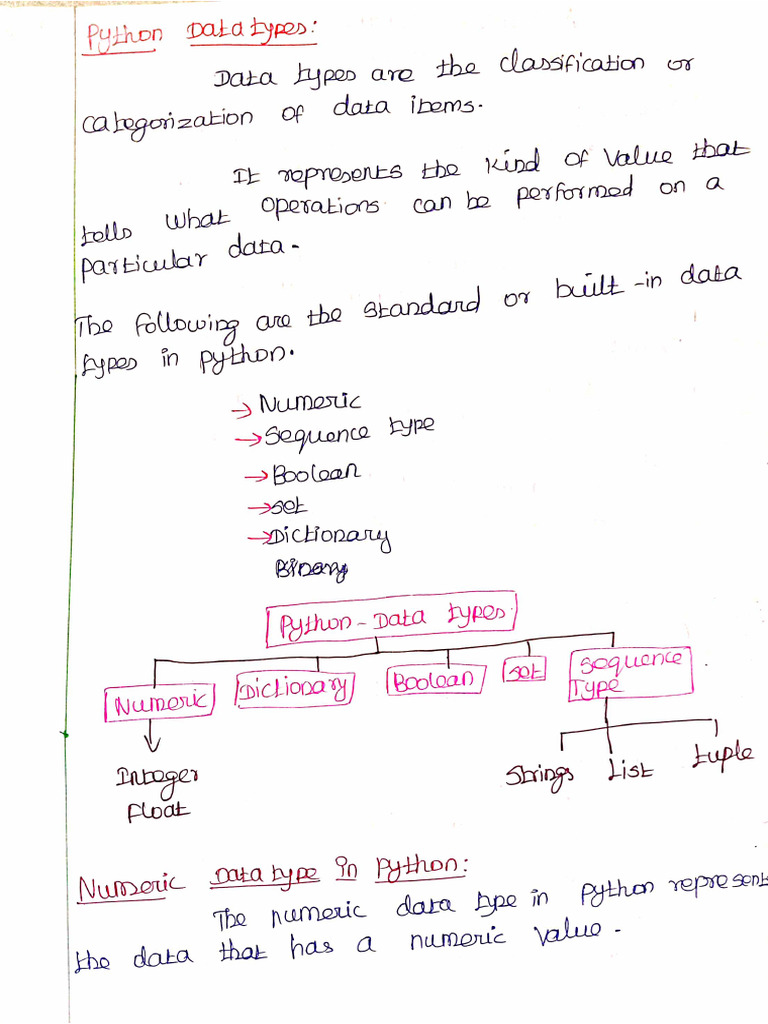 Python Data types:
Data types are the classification or
categorization of data items.
It represents the kind of value that
tells what operations can be performed on a
particular data.
The following are the standard or built-in data
types in python.
→ Numeric
→ Sequence type
→ Boolean
→ set
→ Dictionary
Binary
Python - Data types
Numeric Dictionary Boolean set Sequence
Type
Integer
Float
Strings List tuple
Numeric Data type in Python:
The numeric data type in python represent
the data that has a numeric value.